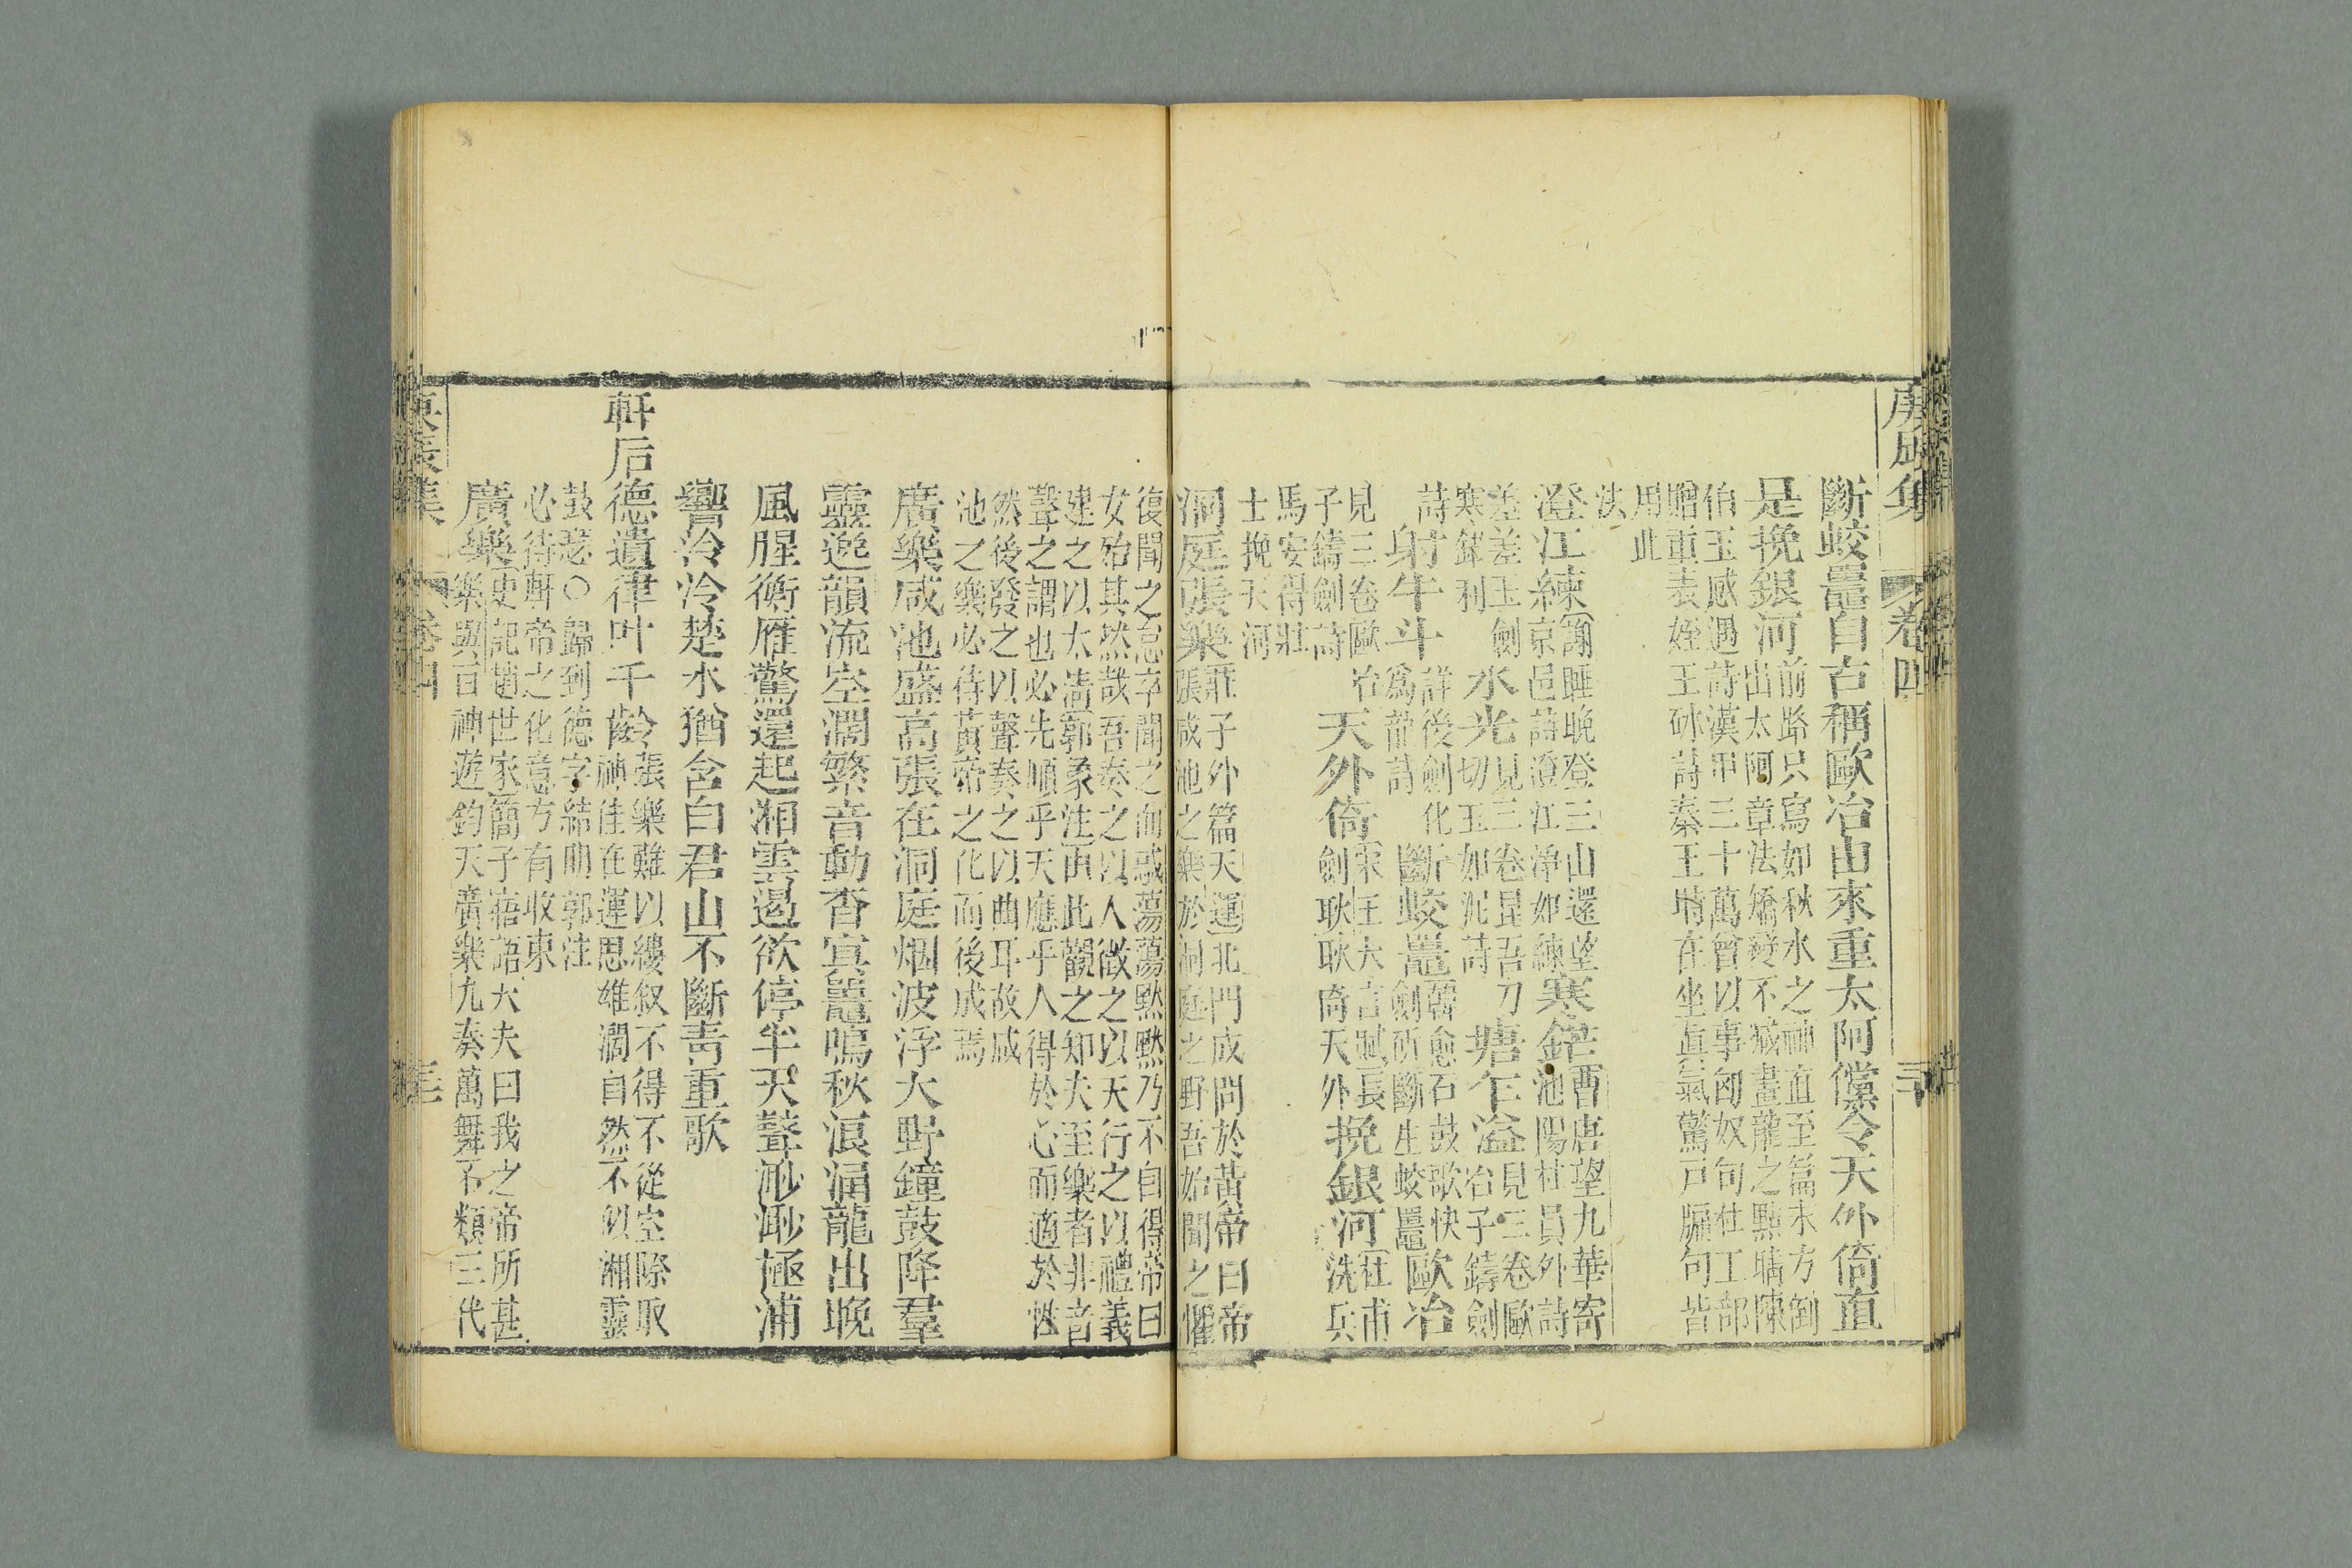 庚辰集 卷四 三十
斷蛟鼉自古稱歐冶由來重太阿儻令天外倚直
是挽銀河
前路只寫如秋水之神直至篇末方倒
出太阿章法矯變不測畫龍之點睛陳
伯玉感遇詩漢甲三十萬曾以事匈奴句杜工部
贈重表姪王砅詩秦王時在坐眞氣驚戶牖句皆
用此
法
澄江練
謝朓晚登三山還望
京邑詩澄江淨如練
寒鋩
曹唐望九華寄
池陽杜員外詩
差差玉劍
寒鋩利
水光
見三卷昆吾刀
切玉如泥詩
塘乍溢
見三卷歐
冶子鑄劍
詩
射牛斗
詳後劍化
爲龍詩
斷蛟鼉
韓愈石鼓歌快
劍斫斷生蛟鼉
歐冶
見三卷歐冶
子鑄劍詩
天外倚
宋玉大言賦長
劍耿耿倚天外
挽銀河
杜甫
洗兵
馬安得壯
士挽天河
洞庭張樂
莊子外篇天運北門成問於黃帝曰帝
張咸池之樂於洞庭之野吾始聞之懼
復聞之怠卒聞之而惑蕩蕩默默乃不自得帝曰
女殆其然哉吾奏之以人徵之以天行之以禮義
建之以太淸郭象注由此觀之知夫至樂者非音
聲之謂也必先順乎天應乎人得於心而適於性
然後發之以聲奏之以曲耳故咸
池之樂必待黃帝之化而後成焉
廣樂咸池盛高張在洞庭烟波浮大野鐘鼓降羣
靈逸韻流空濶繁音動杳冥鼉鳴秋浪涌龍出晚
風腥衡雁驚還起湘雲遏欲停半天聲渺渺極浦
響泠泠楚水猶含白君山不斷靑重歌
軒后德遺律叶千齡
張樂難以縷叙不得不從空際取
神佳在運思雄濶自然不似湘靈
鼓瑟○歸到德字結卽郭注
必待軒帝之化意方有收束
廣樂
史記趙世家簡子寤語大夫曰我之帝所甚
樂與百神遊鈞天廣樂九奏萬舞不類三代
庚辰集 卷四 三